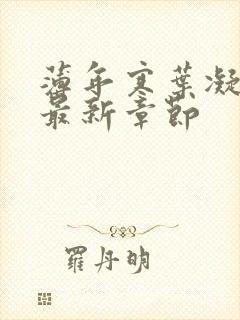 薄年寒葉凝
最新章節
羅丹明